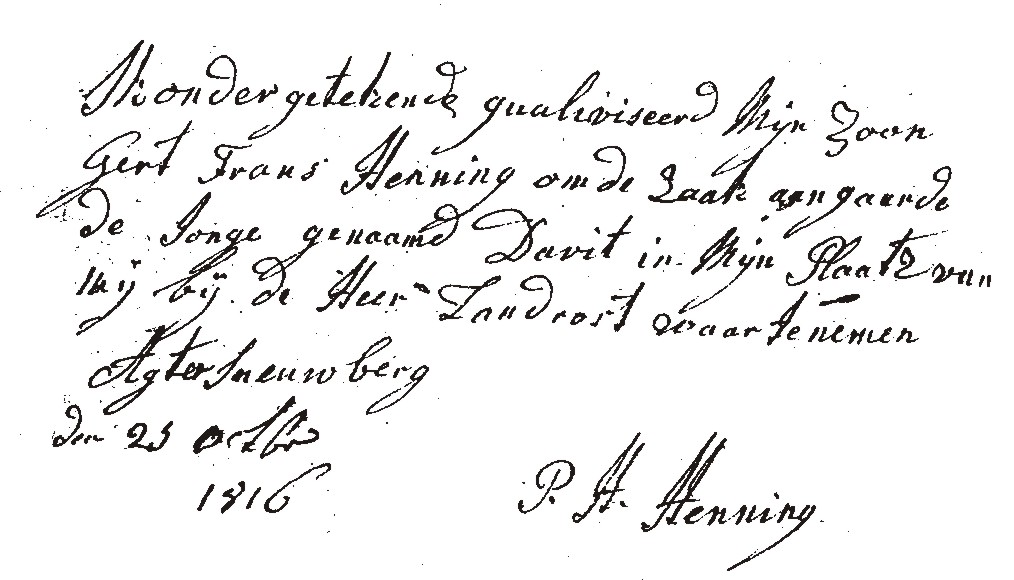 Ik ondergetekende qualiviseerd Mijn Zoon
Gert Frans Henning om de Zaak aangaande
de Jonge genaamd Davit in Mijn Plaatz van
Mij bij de Heer Landrost waar te nemen
Agter Sneuwberg
den 25 Octbr
1816
P. H. Henning